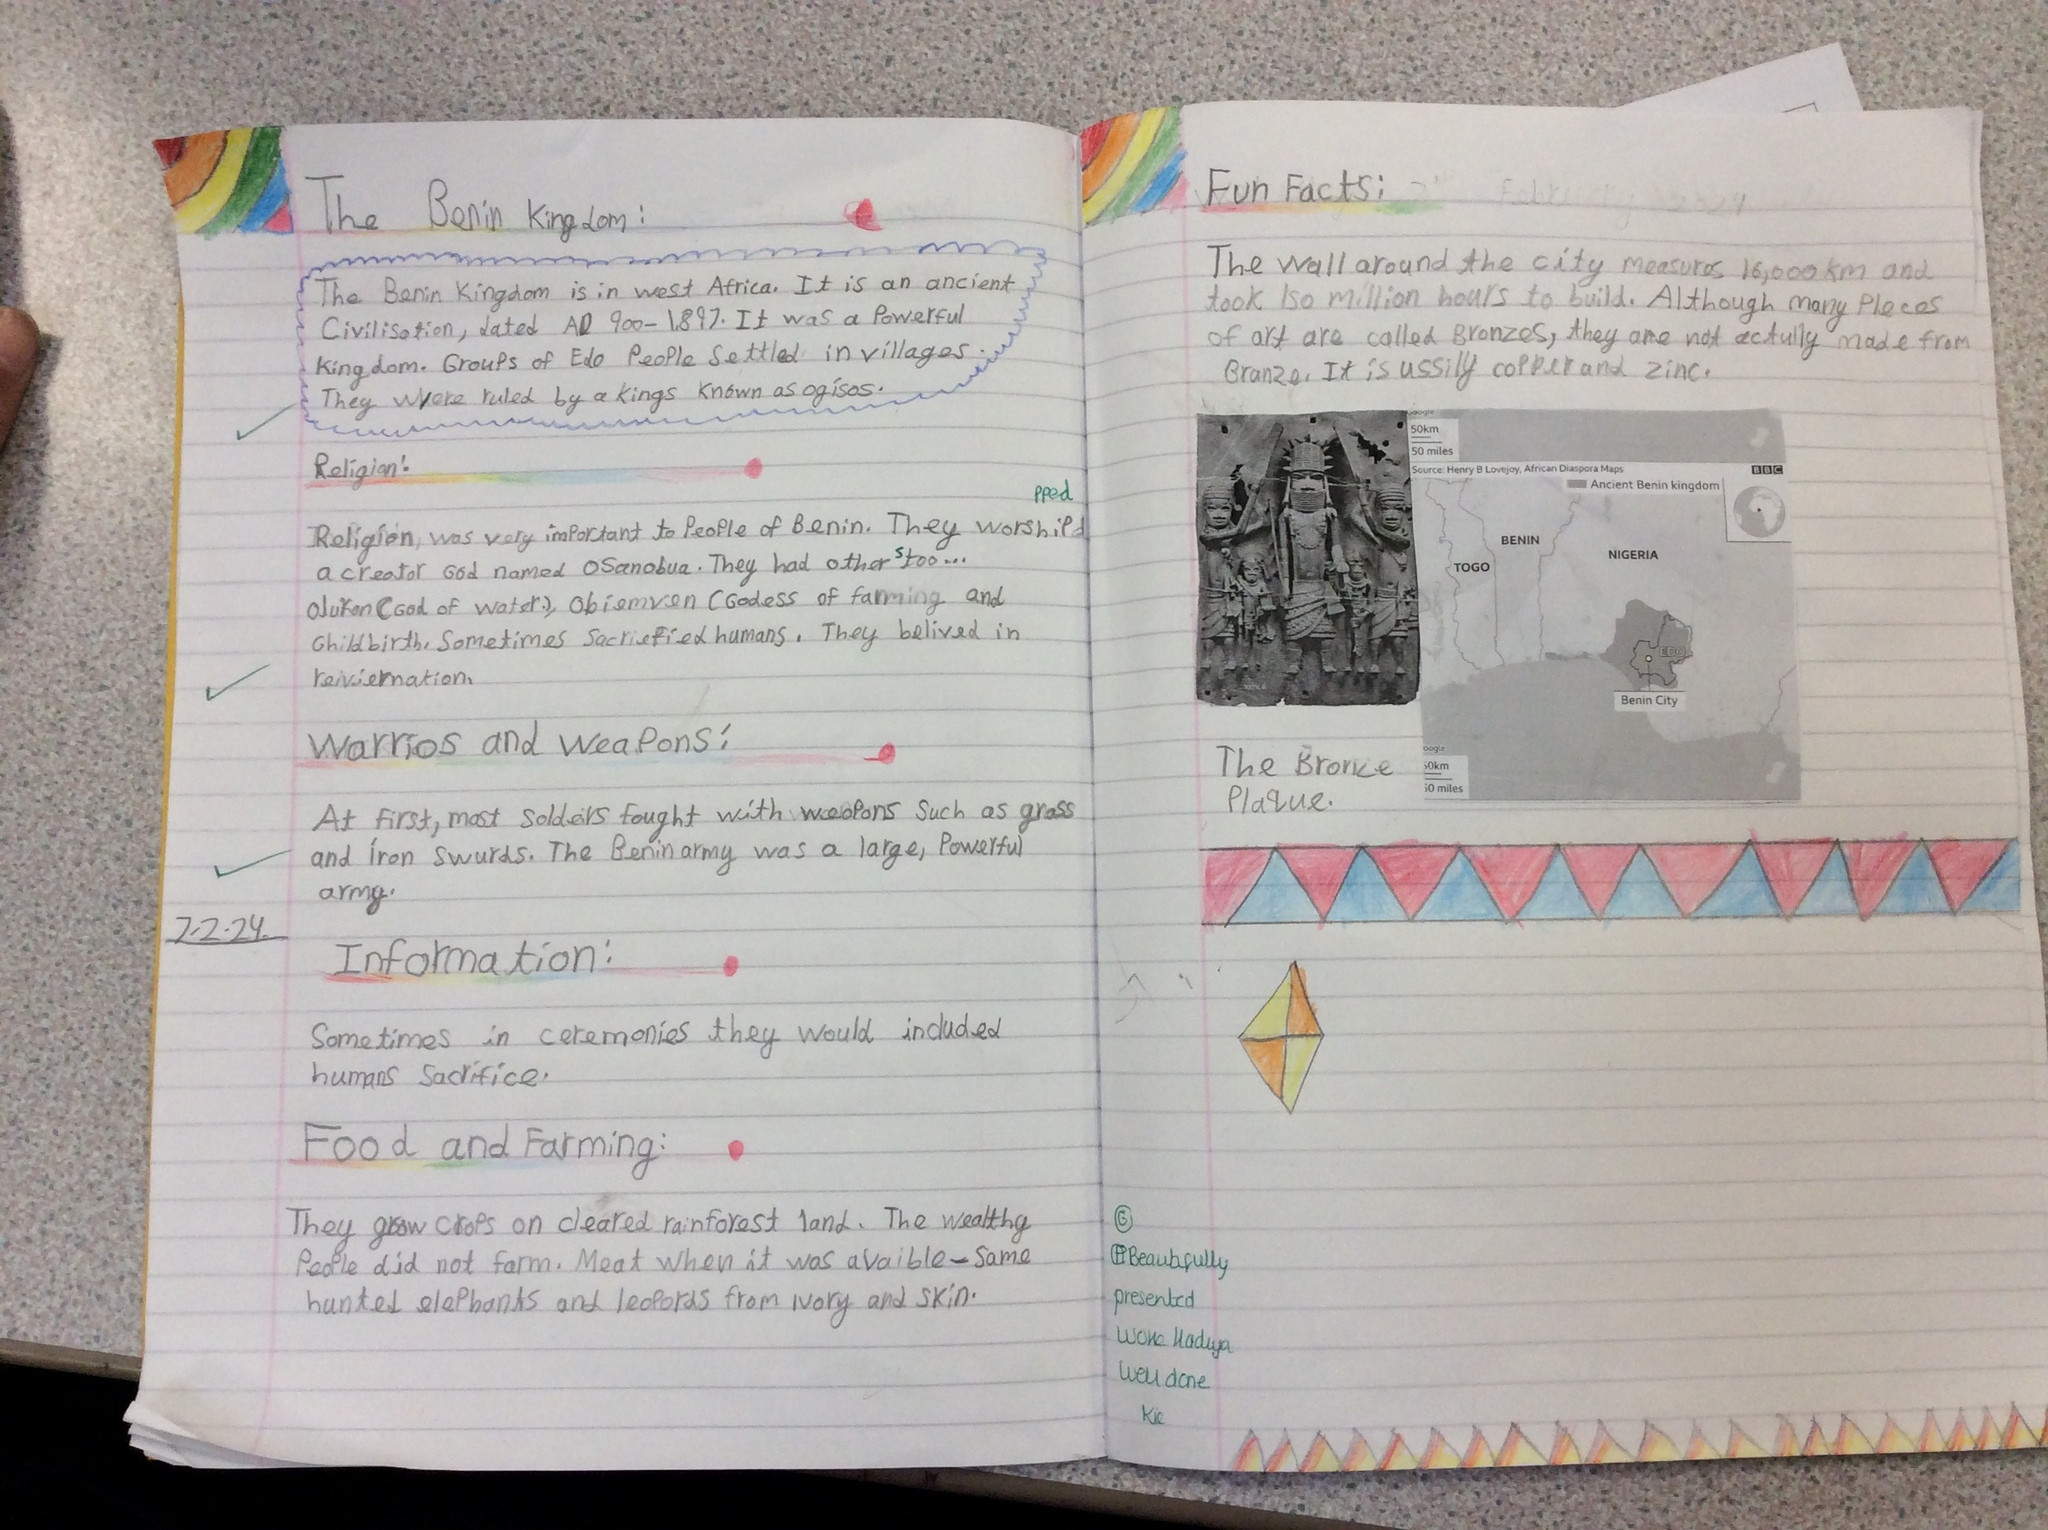 The Benin Kingdom:
The Benin Kingdom is in west Africa. It is an ancient
Civilisation, dated AD 900-1,897. It was a Powerful
Kingdom. Groups of Edo People Settled in villages.
They were ruled by a Kings known as ogisos.
Religion:
pped
Religion, was very important to People of Benin. They worshipd
a creator God named Osanobua. They had other s too...
Olukon (God of water), Obiemven (Godess of farming and
Childbirth. Sometimes Sacriefied humans. They belived in
reiviernation.
Warrios and Weapons:
At first, most soldeirs fought with weapons Such as grass
and iron Swurds. The Benin army was a large, Powerful
army.
7-2-24.
Information:
Sometimes in ceremonies they would included
humans Sacrifice.
Food and Farming:
They grow crops on cleared rainforest land. The wealthy
People did not farm. Meat when it was avaible - Some
hunted elephants and leopords from ivory and skin.
Fun Facts:
February 2024
The wall around the city measures 16,000 km and
took 150 million hours to build. Although many Pieces
of art are called Bronzes, they are not actully made from
Branze. It is ussilly copper and zinc.
Google
50km
50 miles
Source: Henry B Lovejoy, African Diaspora Maps
BBC
Ancient Benin kingdom
BENIN
NIGERIA
TOGO
EDO
Benin City
oogle
50km
50 miles
The Bronze
Plaque.
G
Beautifully
presented
work Hadiya
Well done